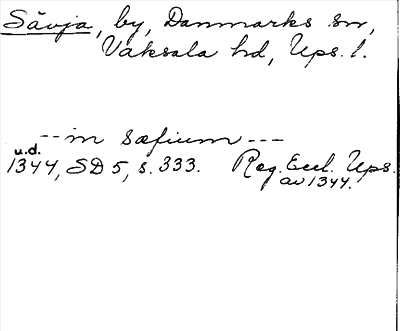 Sävja, by, Danmarks sn,
Vaksala hd, Ups. l.
-- in sæfium ---
u.d.
1344, SD 5, s. 333. Reg. Eccl. Ups.
av 1344.